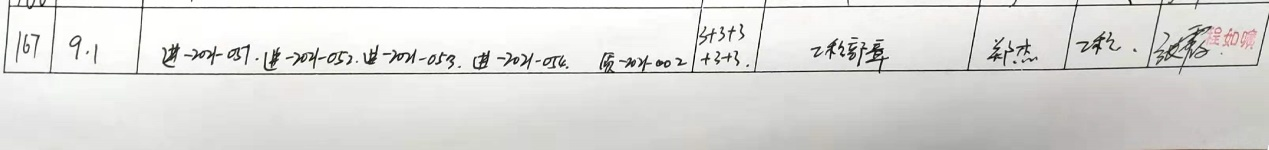 167 9.1 进-2021-051. 进-2021-052. 进-2021-053. 进-2021-054. 质-2021-002 3+3+3 工程部章 郑杰 工程. 张霞 程如
+3+3.